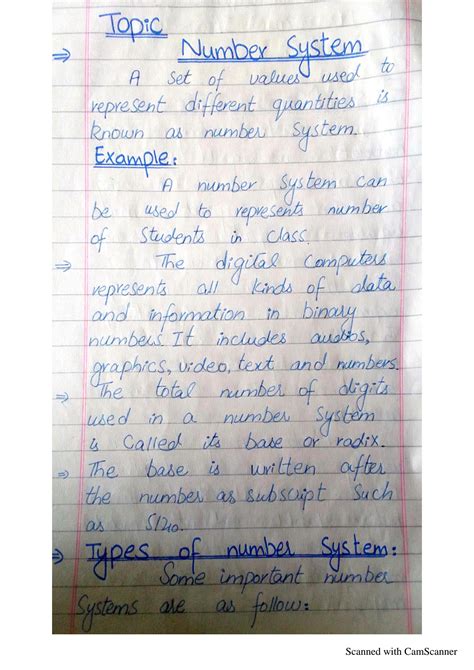 Topic
⇒ Number System
A set of values used to
represent different quantities is
known as number System.
Example:
A number System can
be used to represents number
of Students in Class.
⇒ The digital Computers
represents all kinds of data
and information in binary
numbers. It includes audios,
graphics, video, text and numbers.
⇒ The total number of digits
used in a number System
is Called its base or radix.
⇒ The base is written after
the number as subscript Such
as 5110.
⇒ Types of number System:
Some important number
Systems are as follow:
Scanned with CamScanner